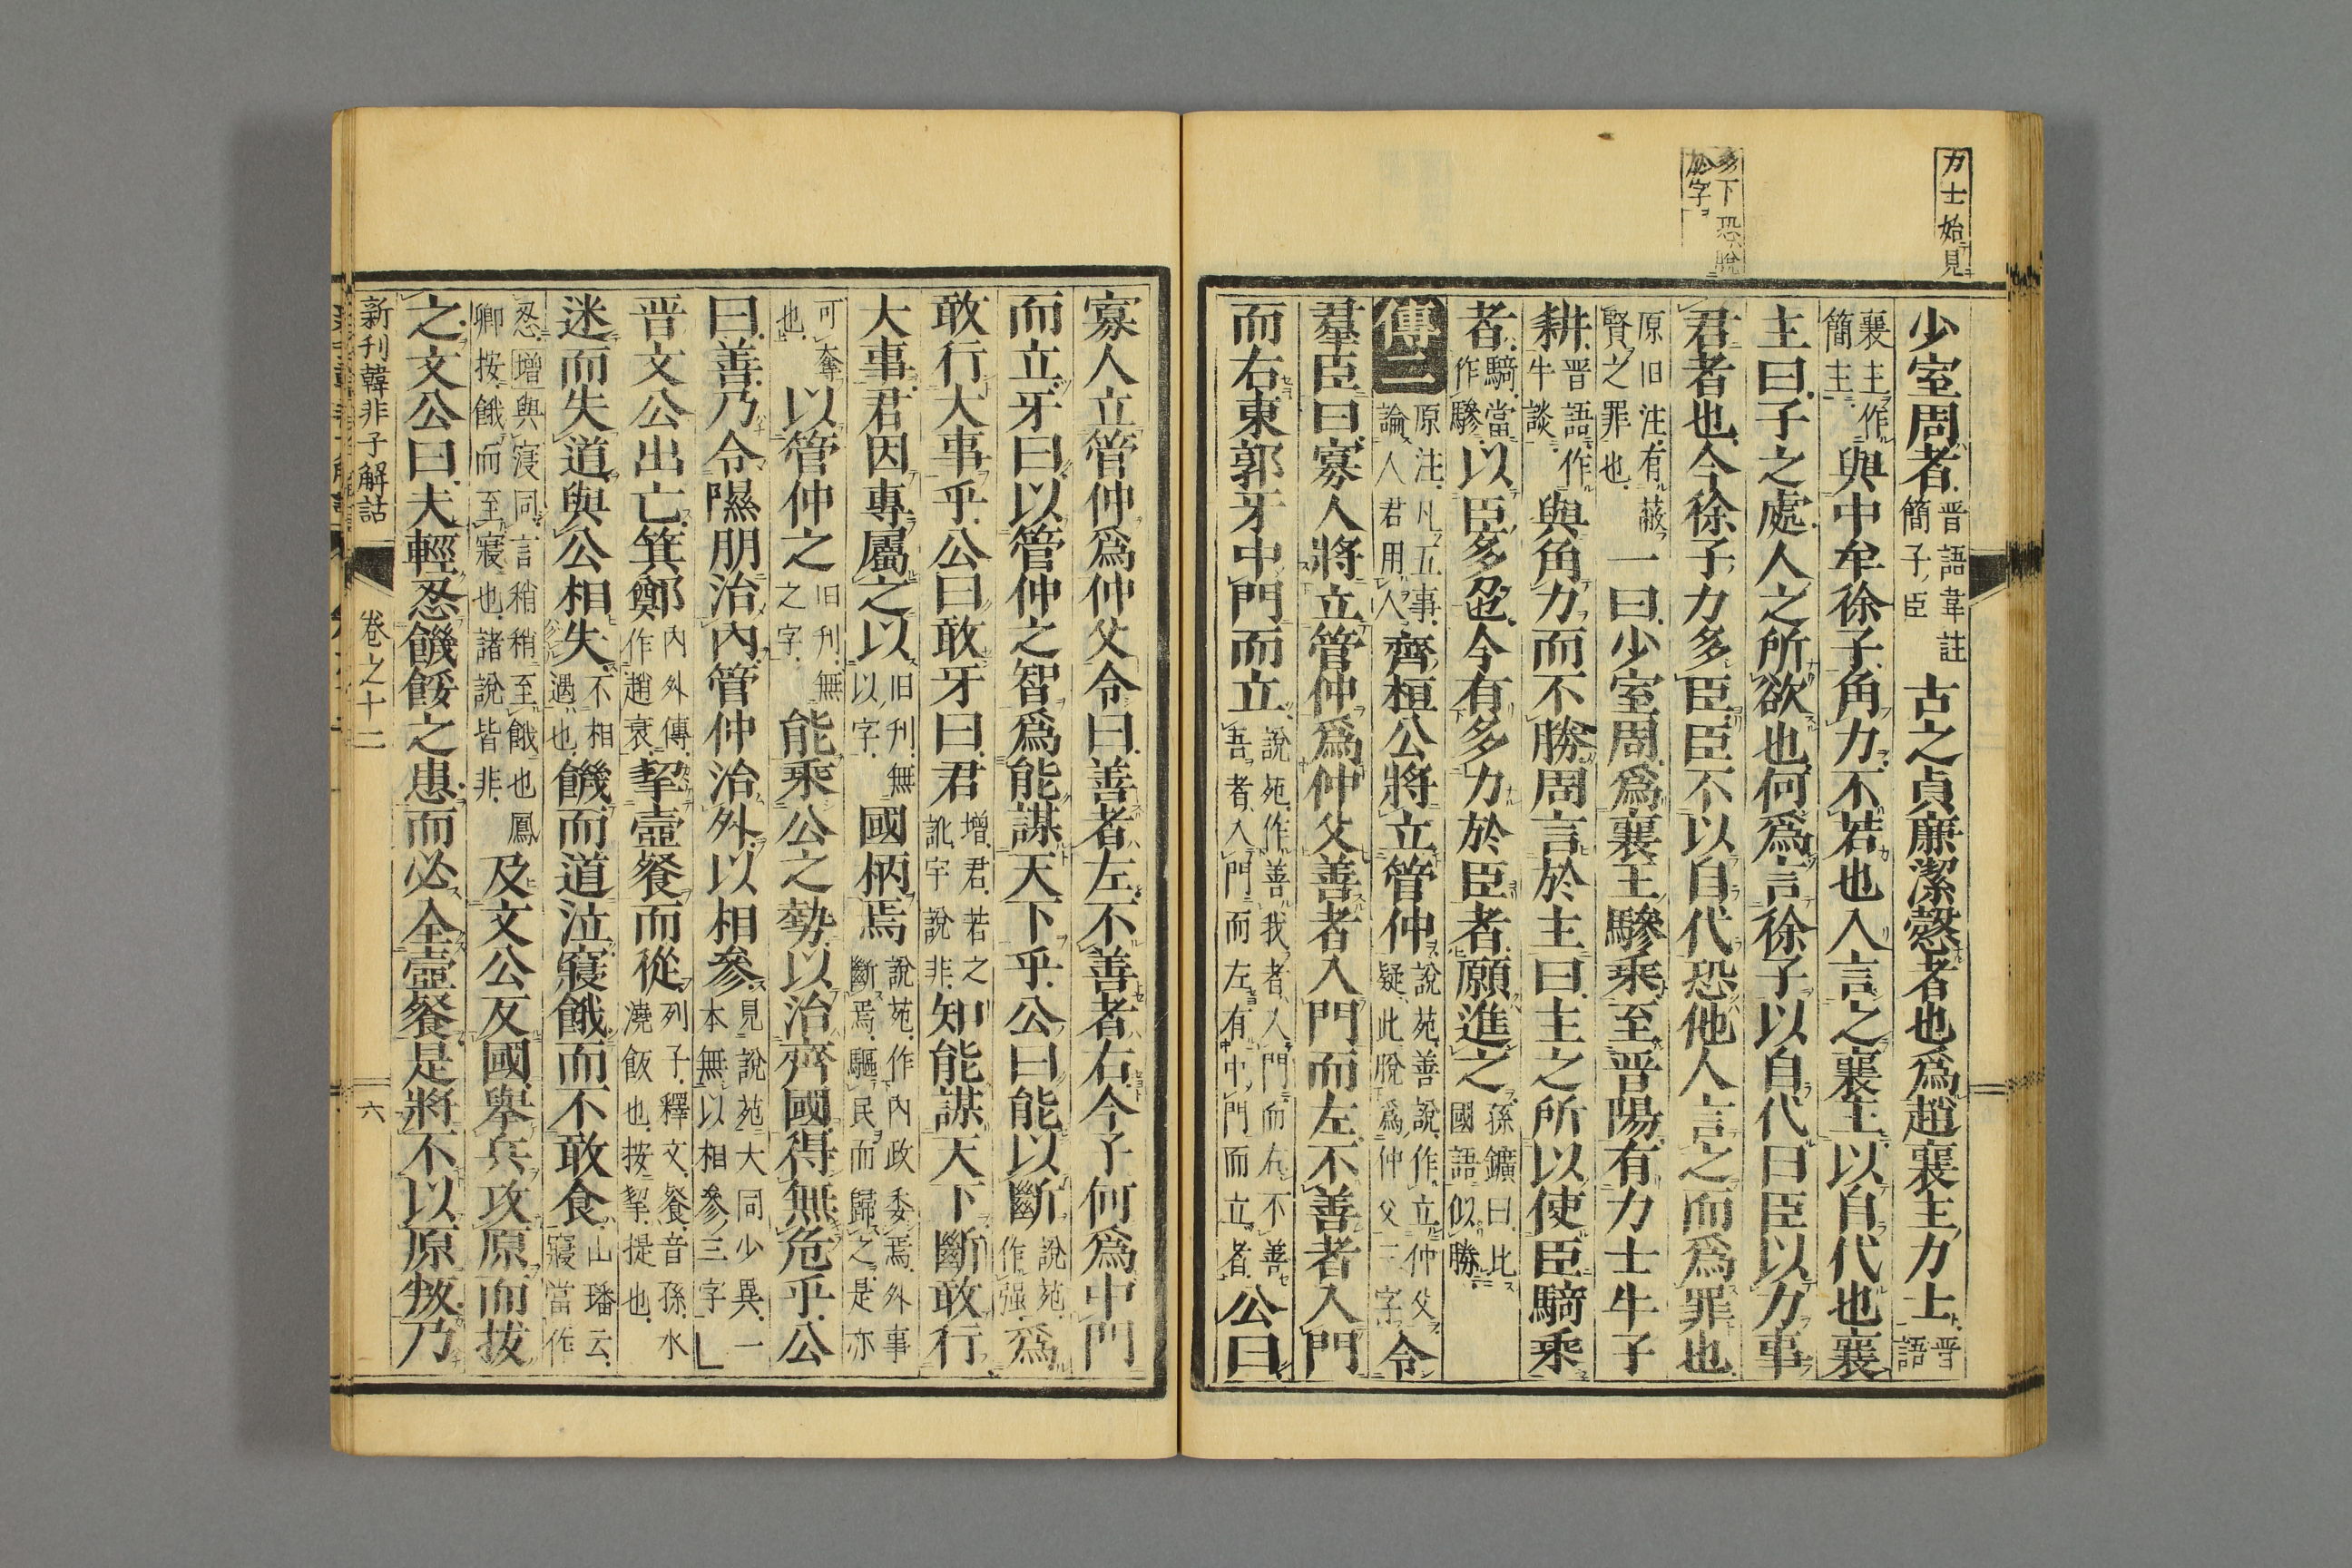 力士始見
多下恐脫
於字
少室周者晋語韋註簡子臣古之貞廉潔愨者也爲趙襄主力士晋語
襄主作簡主與中牟徐子角力不若也入言之襄主以自代也襄
主曰子之處人之所欲也何爲言徐子以自代曰臣以力事
君者也今徐子力多臣臣不以自代恐他人言之而爲罪也
原旧注有蔽賢之罪也一曰少室周爲襄主驂乘至晋陽有力士牛子
耕晋語作牛談與角力而不勝周言於主曰主之所以使臣騎乘
者騎當作驂以臣多力也今有多力於臣者願進之孫鑛曰此國語似勝
傳二原注凡五事論人君用人齊桓公將立管仲說苑善說作立仲父疑此脫爲仲父三字令
羣臣曰寡人將立管仲爲仲父善者入門而左不善者入門
而右東郭牙中門而立說苑作善我者入門而右不善吾者入門而左有中門而立者公曰
寡人立管仲爲仲父令曰善者左不善者右今子何爲中門
而立牙曰以管仲之智爲能謀天下乎公曰能以斷說苑作强爲
敢行大事乎公曰敢牙曰君增君若之訛宇說非知能謀天下斷敢行
大事君因專屬之以旧刊無以字國柄焉說苑作內政委焉外事斷焉驅民而歸之是亦
可奪也以管仲之旧刊無之字能乘公之勢以治齊國得無危乎公
曰善乃令隰朋治內管仲治外以相參見說苑大同少異一本無以相參三字
晋文公出亡箕鄭內外傳作趙衰挈壺餐而從列子釋文餐音孫水澆飯也按挈提也
迷而失道與公相失不相遇也饑而道泣寢餓而不敢食山璠云寢當作
忍增與寖同言稍稍至餓也鳳卿按餓而至寢也諸說皆非及文公反國舉兵攻原而拔
之文公曰夫輕忍饑餒之患而必全壺餐是將不以原叛乃
新刊韓非子解詁 卷之十二 六